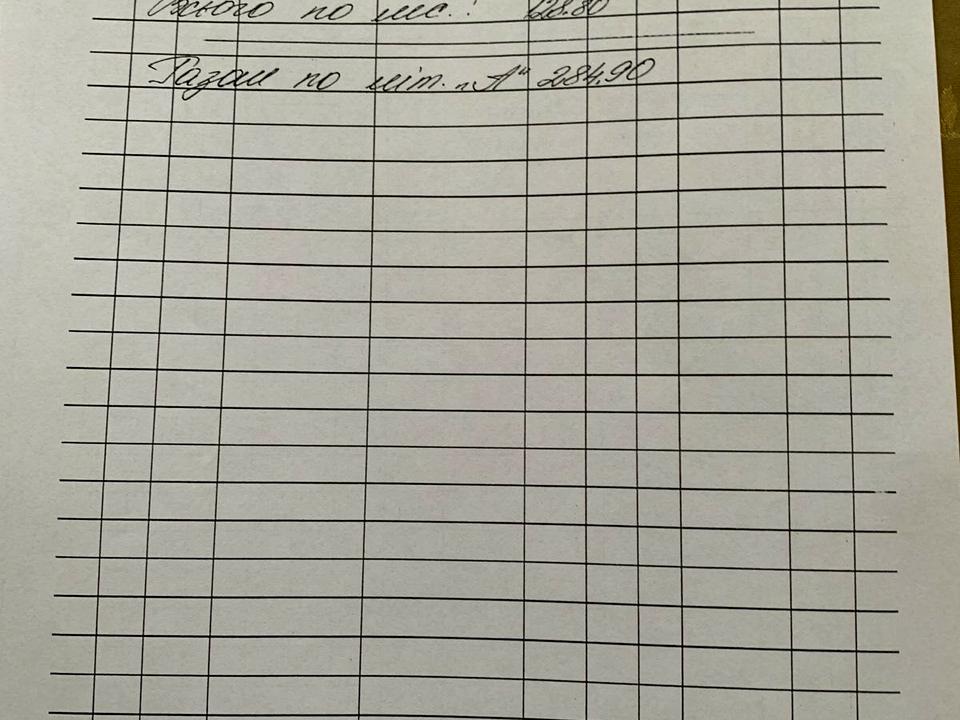 Всього по м.с.: 128.80
Разом по літ. „А“ 284.90